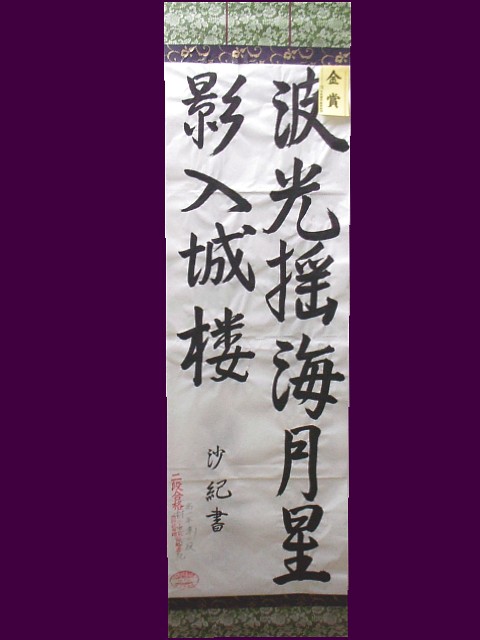 金賞
波光揺海月星
影入城楼
沙紀書
二段合格